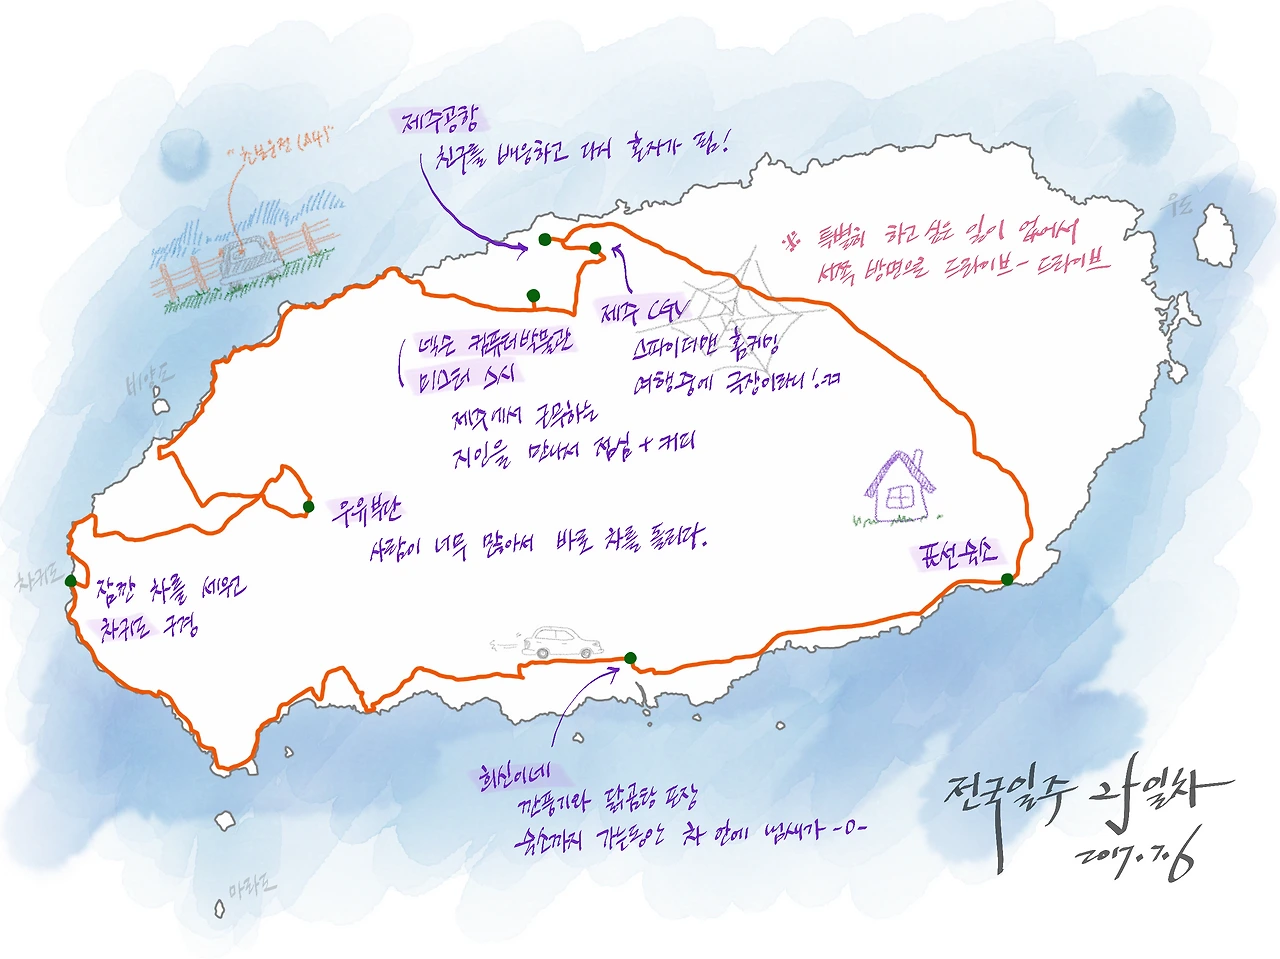 제주공항
친구를 배웅하고 다시 혼자가 됨!
"초보운전 (A4)"
우도
※ 특별히 하고 싶은 일이 없어서
서쪽 방면으로 드라이브-드라이브
제주 CGV
스파이더맨 홈커밍
여행중에 극장이라니!ㅋㅋ
넥슨 컴퓨터박물관
미스터 스시
제주에서 근무하는
지인을 만나서 점심 + 커피
비양도
우유부단
사람이 너무 많아서 바로 차를 돌리다.
표선숙소
차귀도
잠깐 차를 세우고
차귀도 구경
희신이네
깐풍기와 닭곰탕 포장
숙소까지 가는동안 차 안에 냄새가 -0-
마라도
전국일주 일차
2017.7.6